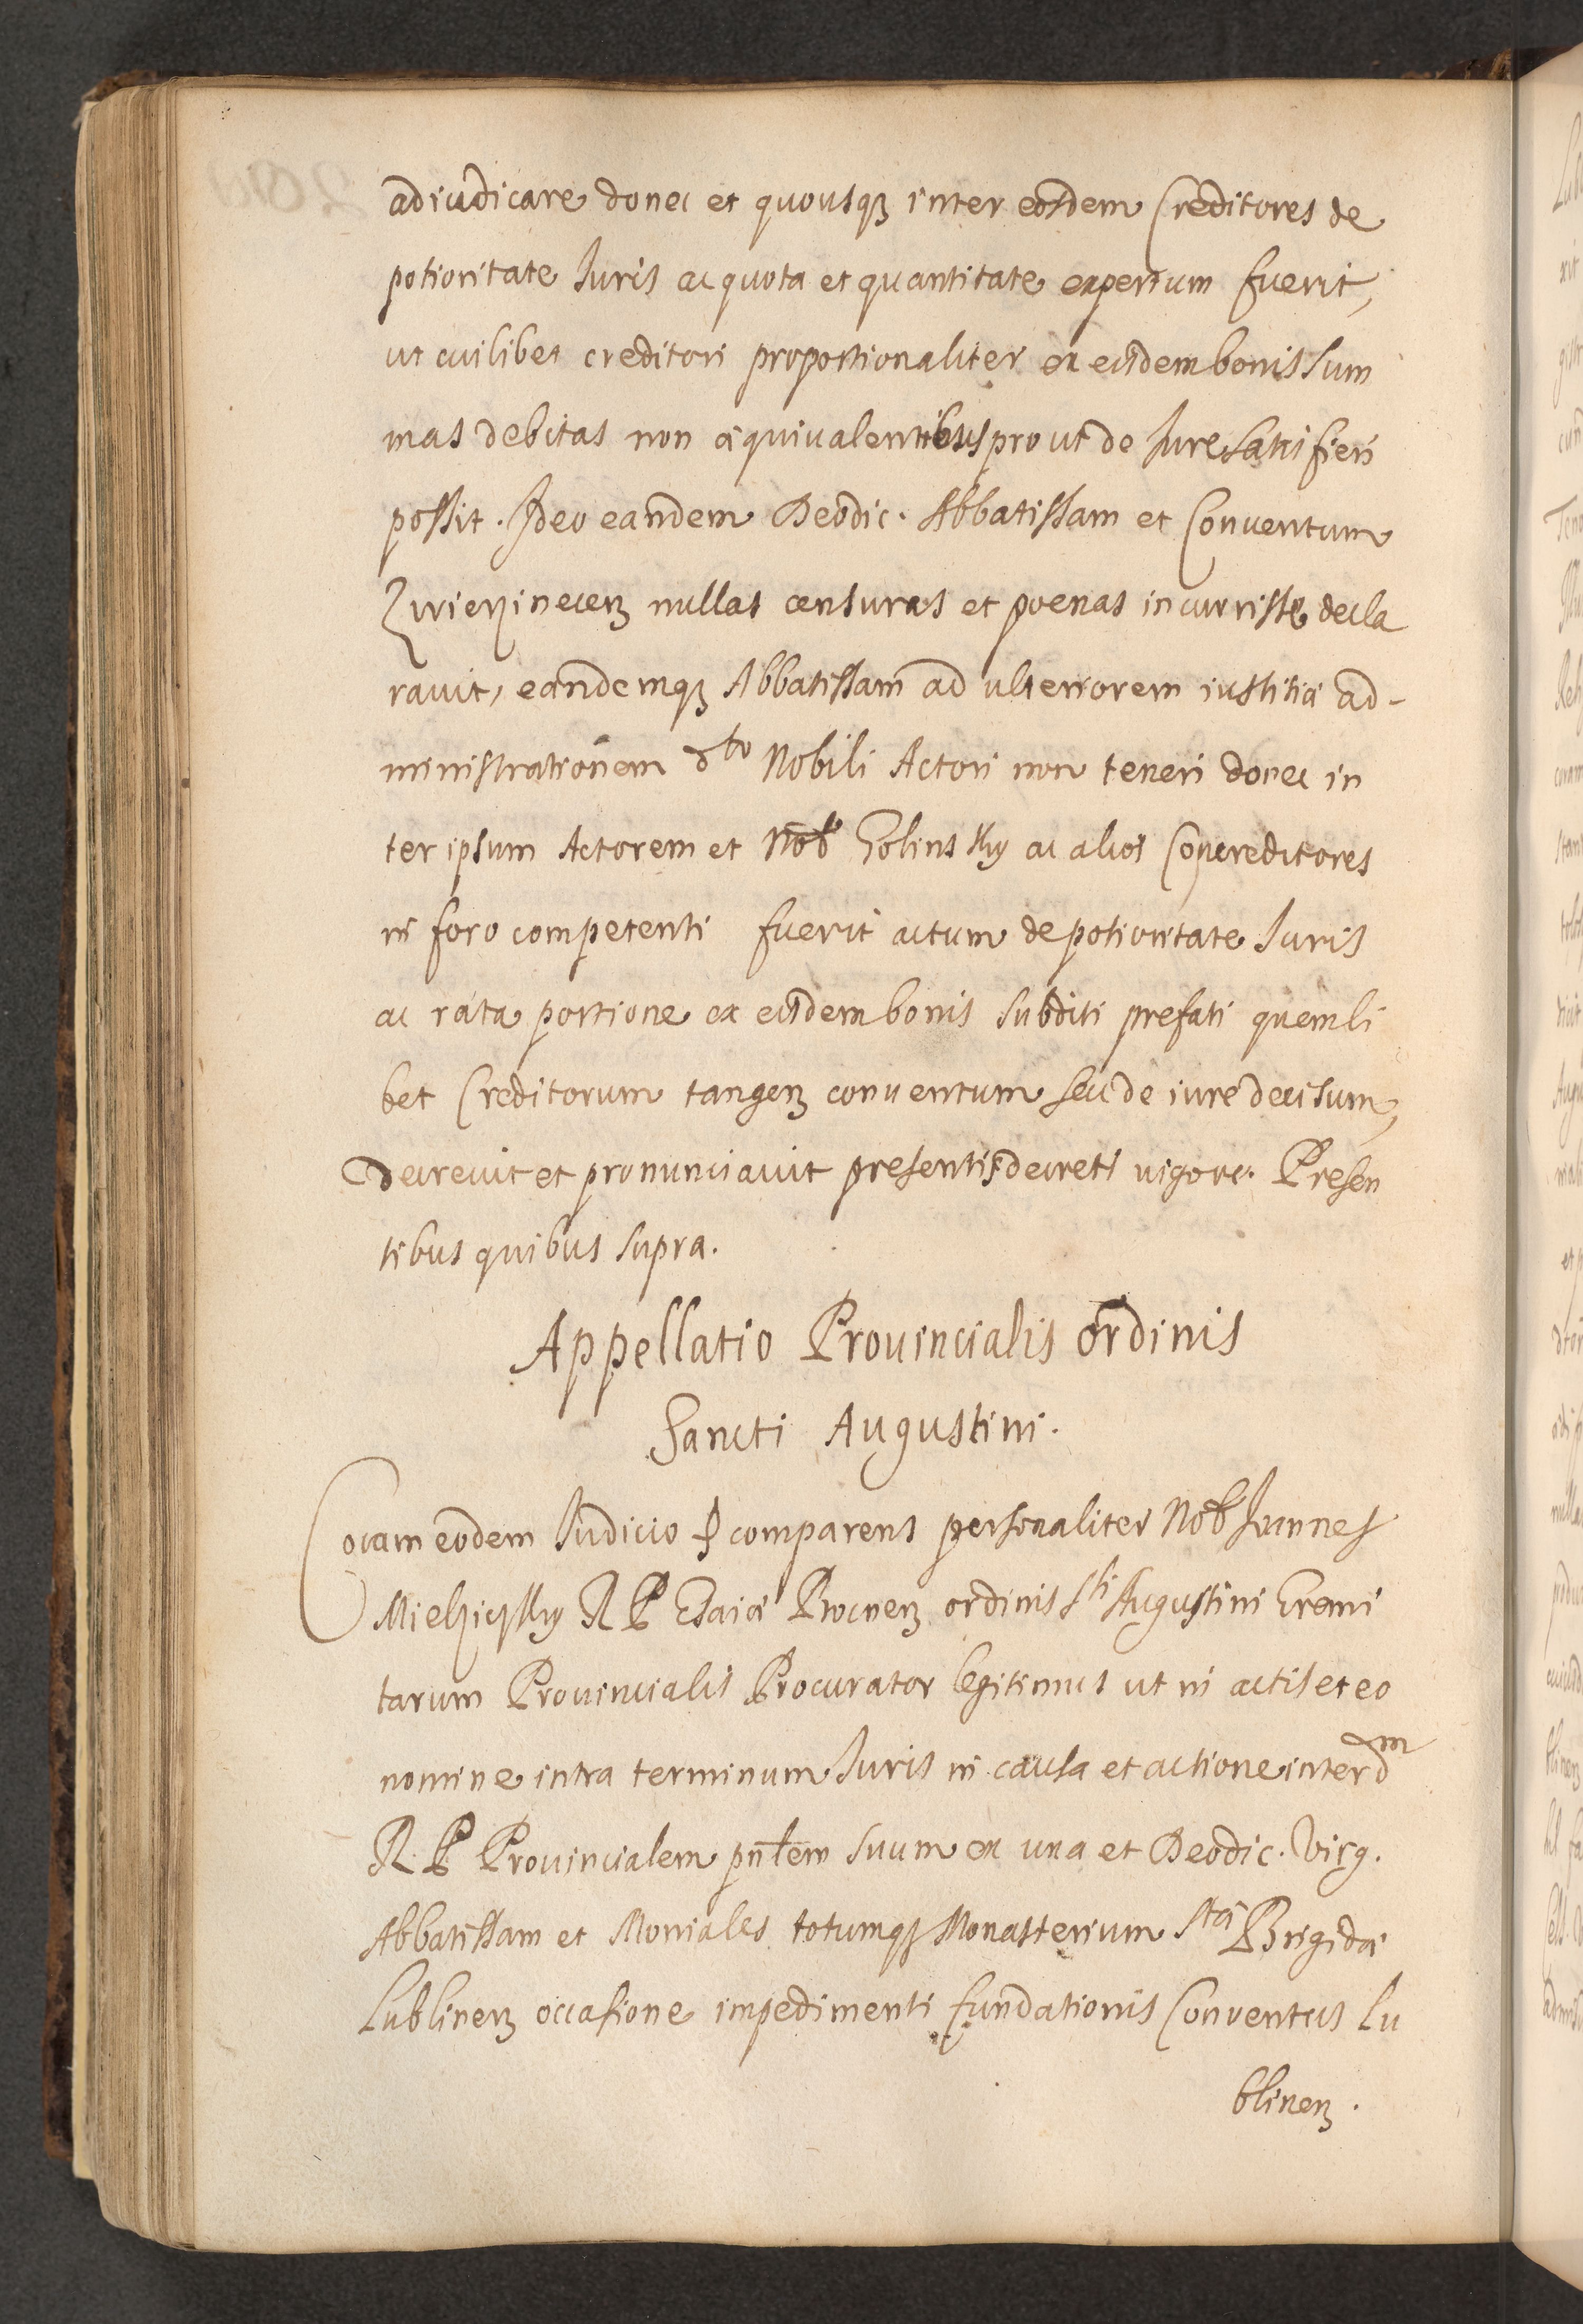 adiudicare donec et quousqȝ inter eosdem Creditores de
potioritate Iuris ac quota et quantitate expertum fuerit,
ut cuilibet creditori proportionaliter ex eisdem bonis sum
mas debitas non æquiualentibus prout de Iure satisfieri
possit. Ideo eandem Deodic. Abbatissam et Conuentum
Zwierzineceñ nullas censuras et poenas incurrisse decla
rauit, eandemqȝ Abbatissam ad ulteriorem iustitiæ ad-
ministrationem dto Nobili Actori non teneri donec in
ter ipsum Actorem et Nob Golinsky ac alios Concreditores
in foro competenti fuerit actum de potioritate Iuris
ac rata portione ex eisdem bonis subditi prefati quemli
bet Creditorum tangeñ conuentum seu de iure decisum,
decreuit et pronunciauit presentis decreti uigore. Presen
tibus quibus supra.
Appellatio Prouincialis ordinis
Sancti Augustini.
Coram eodem Iudicio comparens personaliter Nob Joannes
R P Esaiæ ordinis Sti Augustini Eremi
tarum Prouincialis Procurator legitimus ut in actis et eo
nomine intra terminum Iuris in causa et actione inter dm
R. P Prouincialem pñlem suum ex una et Deodic. Virg.
Abbatissam et Moniales totumqȝ Monasterium Stæ Brigidæ
Lublineñ occasione impedimenti fundationis Conventus Lu
blineñ.